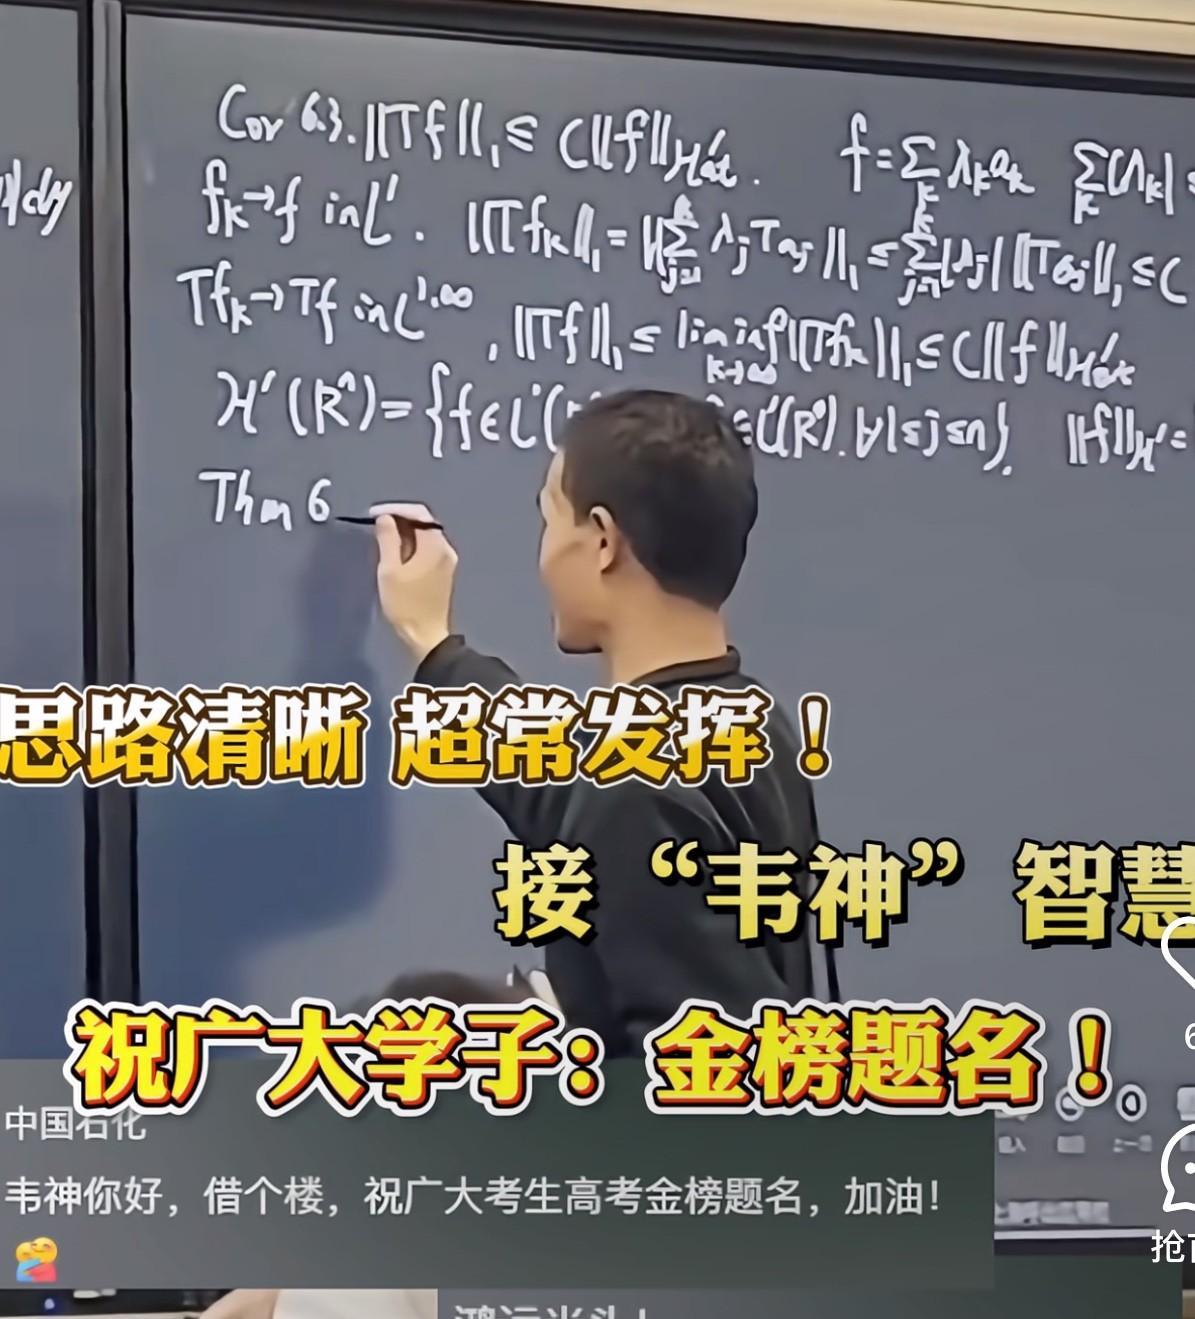 Cor 6.3. ||Tf||₁ ≤ C||f||_{H¹at}. f = Σ_k λ_k a_k Σ_k |λ_k| ≤
)|dy
f_k → f in L¹. ||Tf_k||₁ = ||Σ_{j=1}^k λ_j Ta_j||₁ ≤ Σ_{j=1}^k |λ_j| ||Ta_j||₁ ≤ C
Tf_k → Tf in L^{1,∞}, ||Tf||₁ ≤ liminf_{k→∞} ||Tf_k||₁ ≤ C||f||_{H¹at}
H¹(Rⁿ) = {f ∈ L¹( ∈ L¹(Rⁿ). ∀1≤j≤n}. ||f||_{H¹} =
Thm 6
思路清晰 超常发挥！
接“韦神”智慧
祝广大学子：金榜题名！
中国石化
韦神你好，借个楼，祝广大考生高考金榜题名，加油！
抢